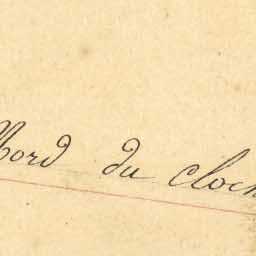 Nord du cloch